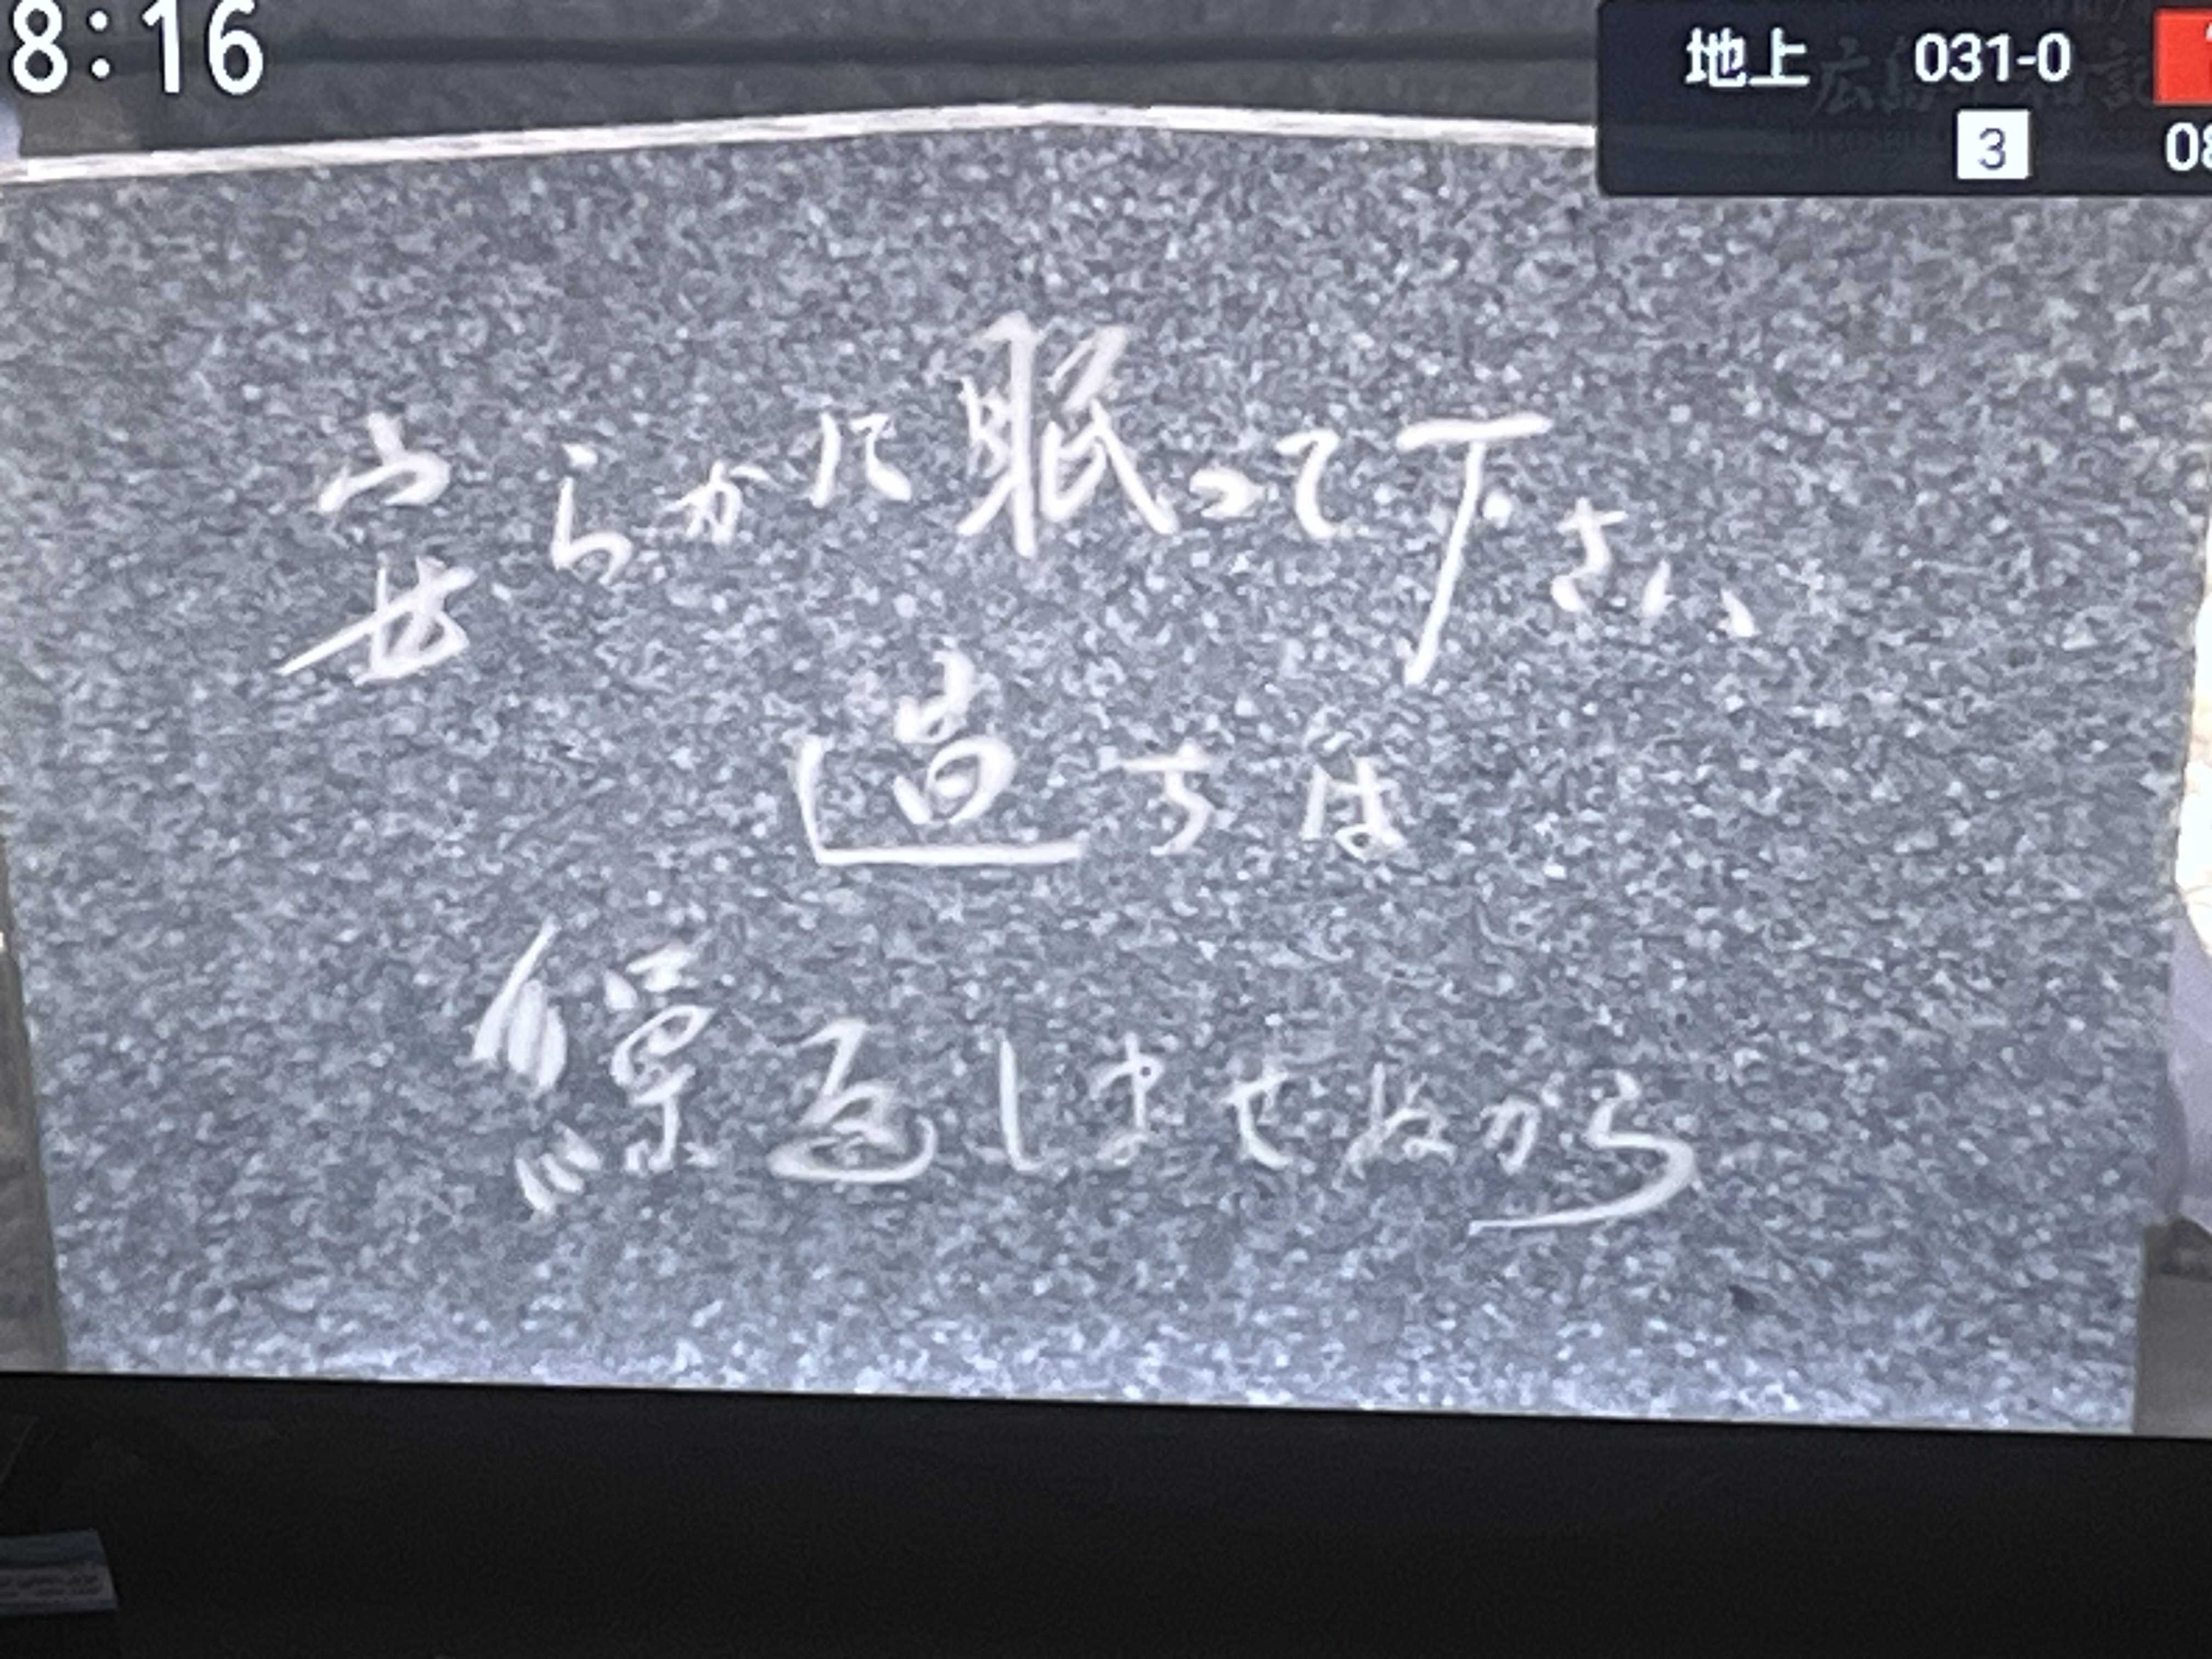 8:16
地上 031-0
3 08
安らかに眠って下さい
過ちは
繰返しませぬから